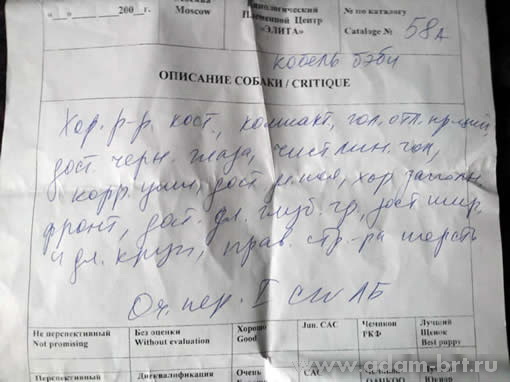 "__"______200__г. Москва Moscow Кинологический Племенной Центр «ЭЛИТА» № по каталогу Cataloge № 58А
кобель бэби
ОПИСАНИЕ СОБАКИ / CRITIQUE
Хор. р-р. кост, компакт, гол. отл. пр-ций,
дост. черн. глаза, чист лин. гол,
корр. уши, дост. шея, хор. заполн
фронт, дост. дл. глуб. гр, дост шир,
и дл. круп, прав. стр-ра шерсть
Оч. пер. I CW ЛБ
Не перспективный Not promising
Без оценки Without evaluation
Хорошо Good
Jun. CAC
Чемпион РКФ
Лучший Щенок Best puppy
Перспективный
Дисквалификация
Очень
CAC
www.adam.brt.ru